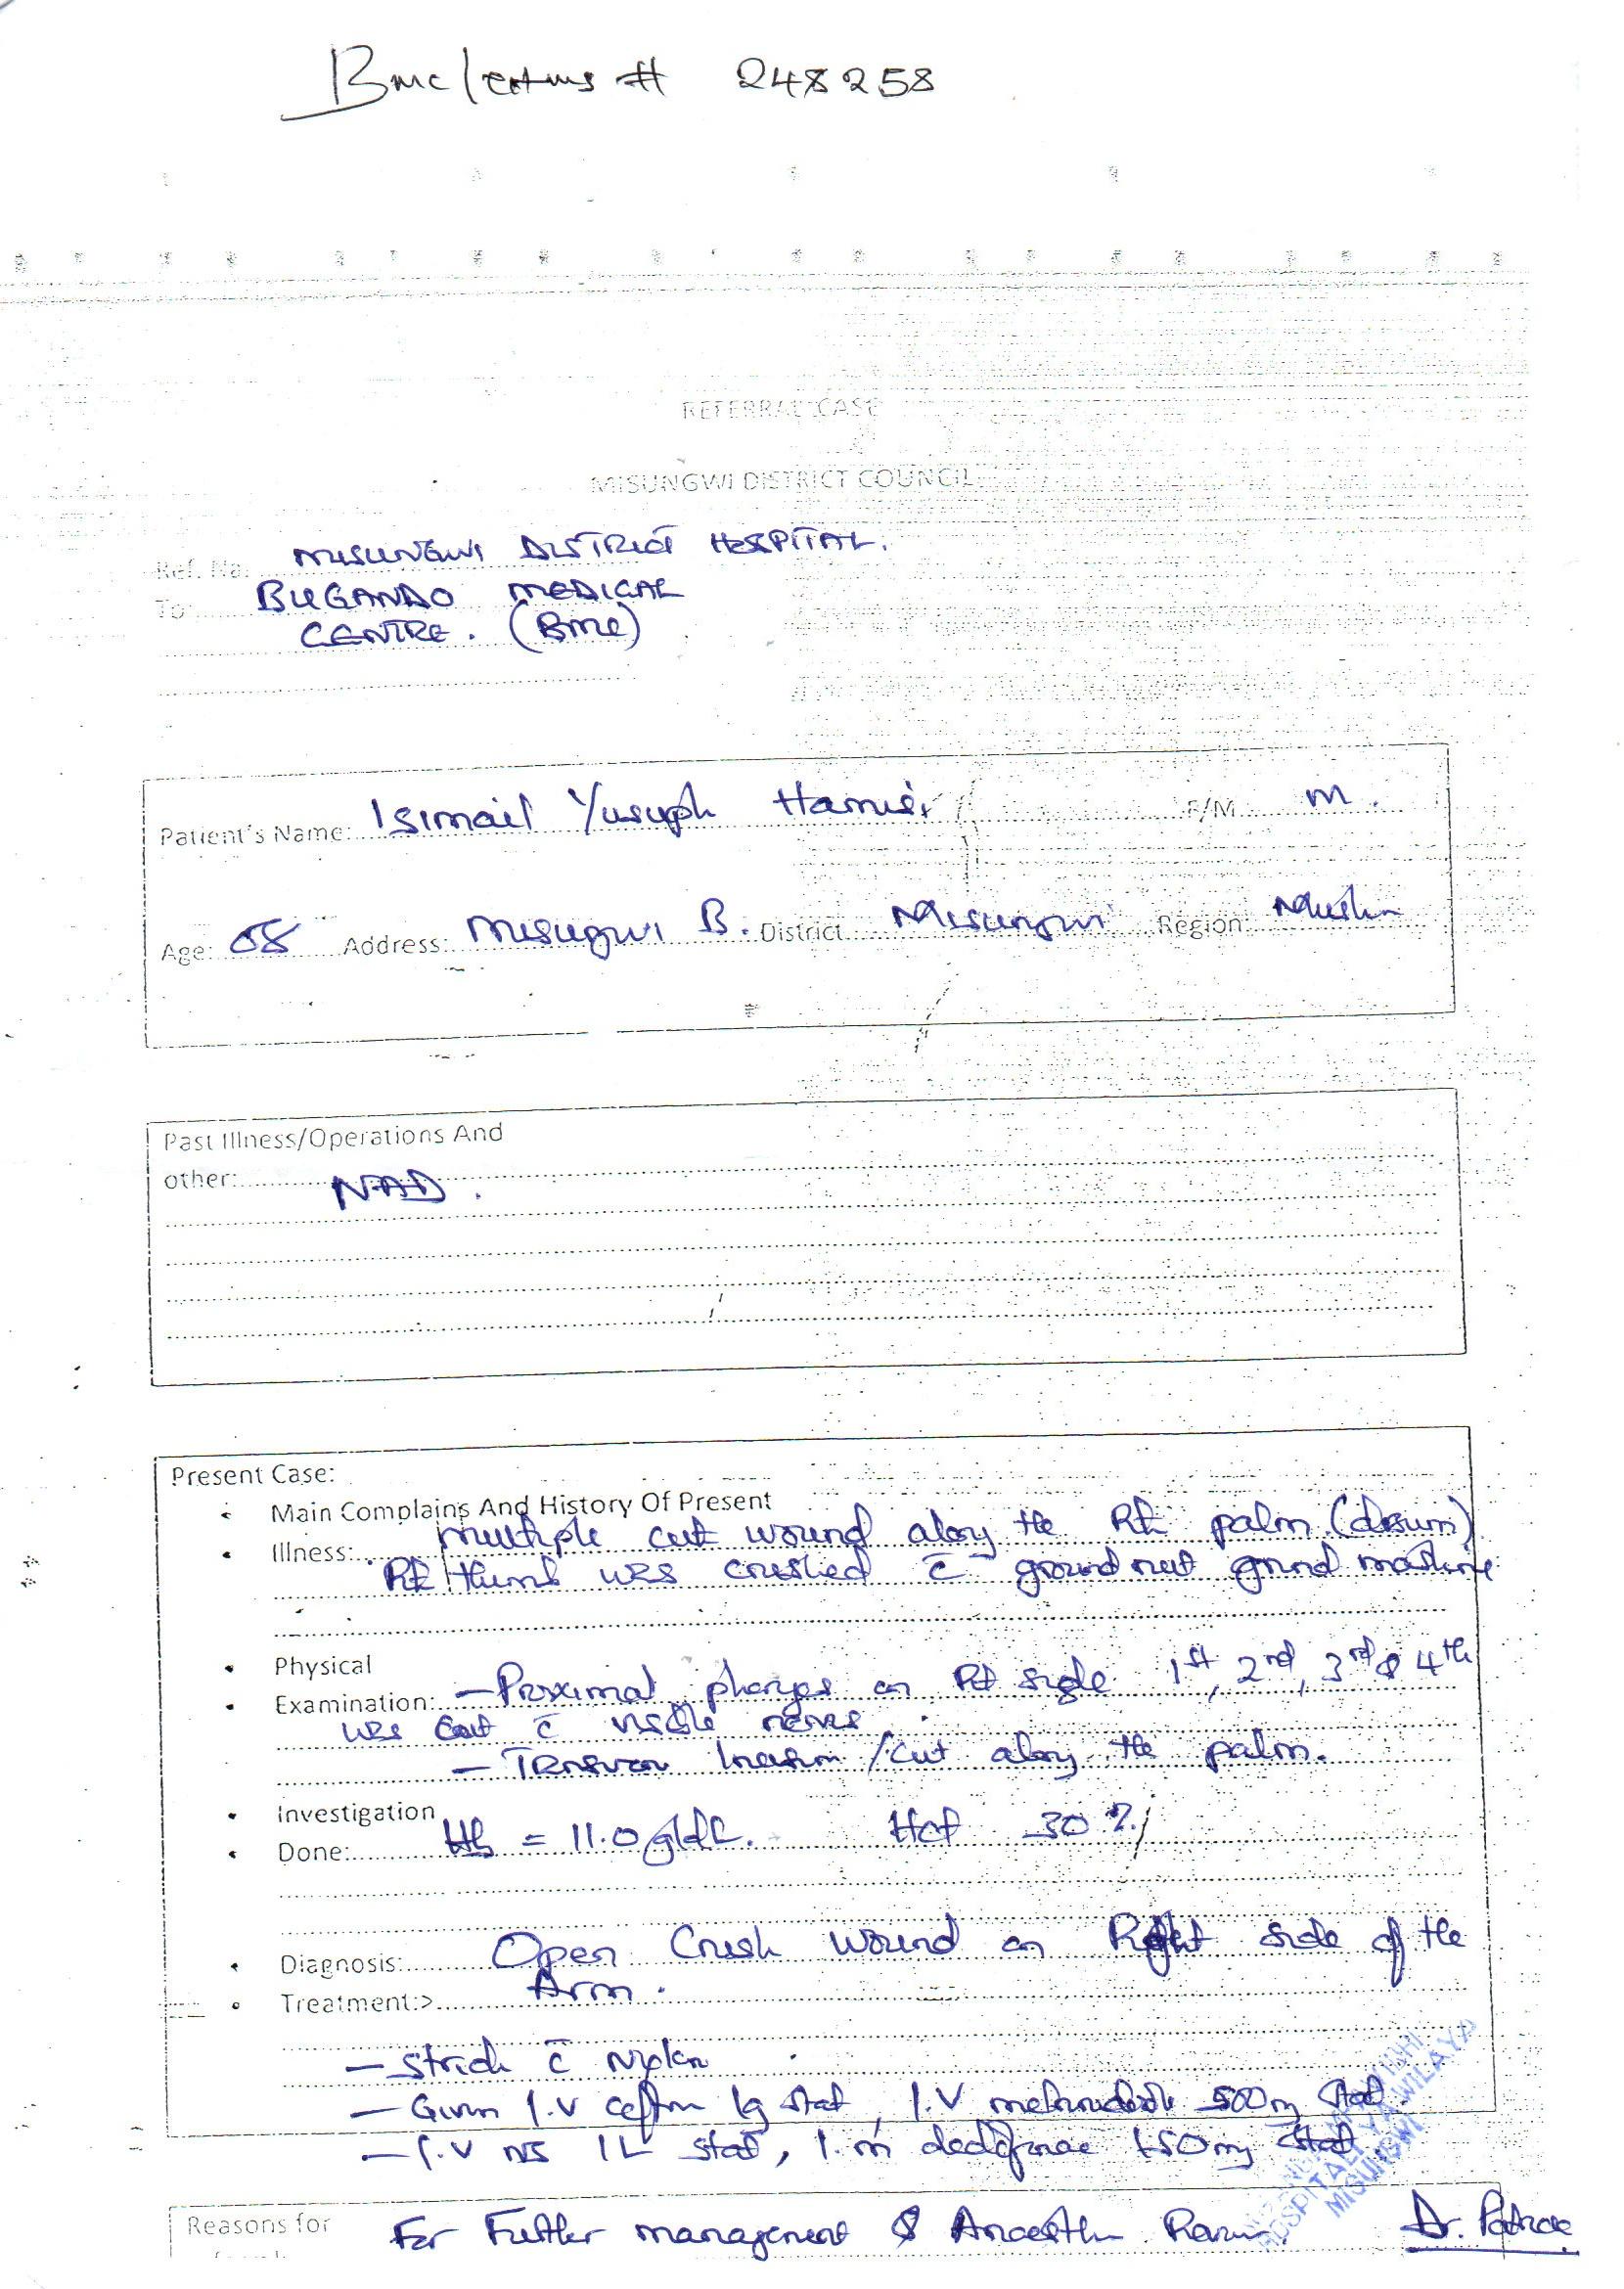 Bmc/ # 248258
REFERRAL CASE
MISUNGWI DISTRICT COUNCIL
Ref. No: MISUNGWI DISTRICT HOSPITAL.
To BUGANDO MEDICAL
CENTRE. (BMC)
Patient's Name: Isimail Yusuph Hamisi F/M M.
Age: 08 Address: Misugwi B. District Misungwi Region
Past Illness/Operations And
other: NAD.
Present Case:
• Main Complains And History Of Present
• Illness: multiple cut wound along the Rt palm (dosum)
Rt thumb was crushed c̄ ground nut grind mashine
• Physical
• Examination: – Proximal on Rt 1st, 2nd, 3rd & 4th
was cut c̄ visible nerves.
– /cut along the palm.
• Investigation
• Done: Hb = 11.0 g/dL. Hct 30%
• Diagnosis: Open Crush wound on Right side of the
Arm.
• Treatment:>
– c̄ Nylon
– Given I.V 1g stat, I.V 500mg stat
– I.V NS 1L stat, I.m stat.
HOSPITALI YA WILAYA
Reasons for For Further management &